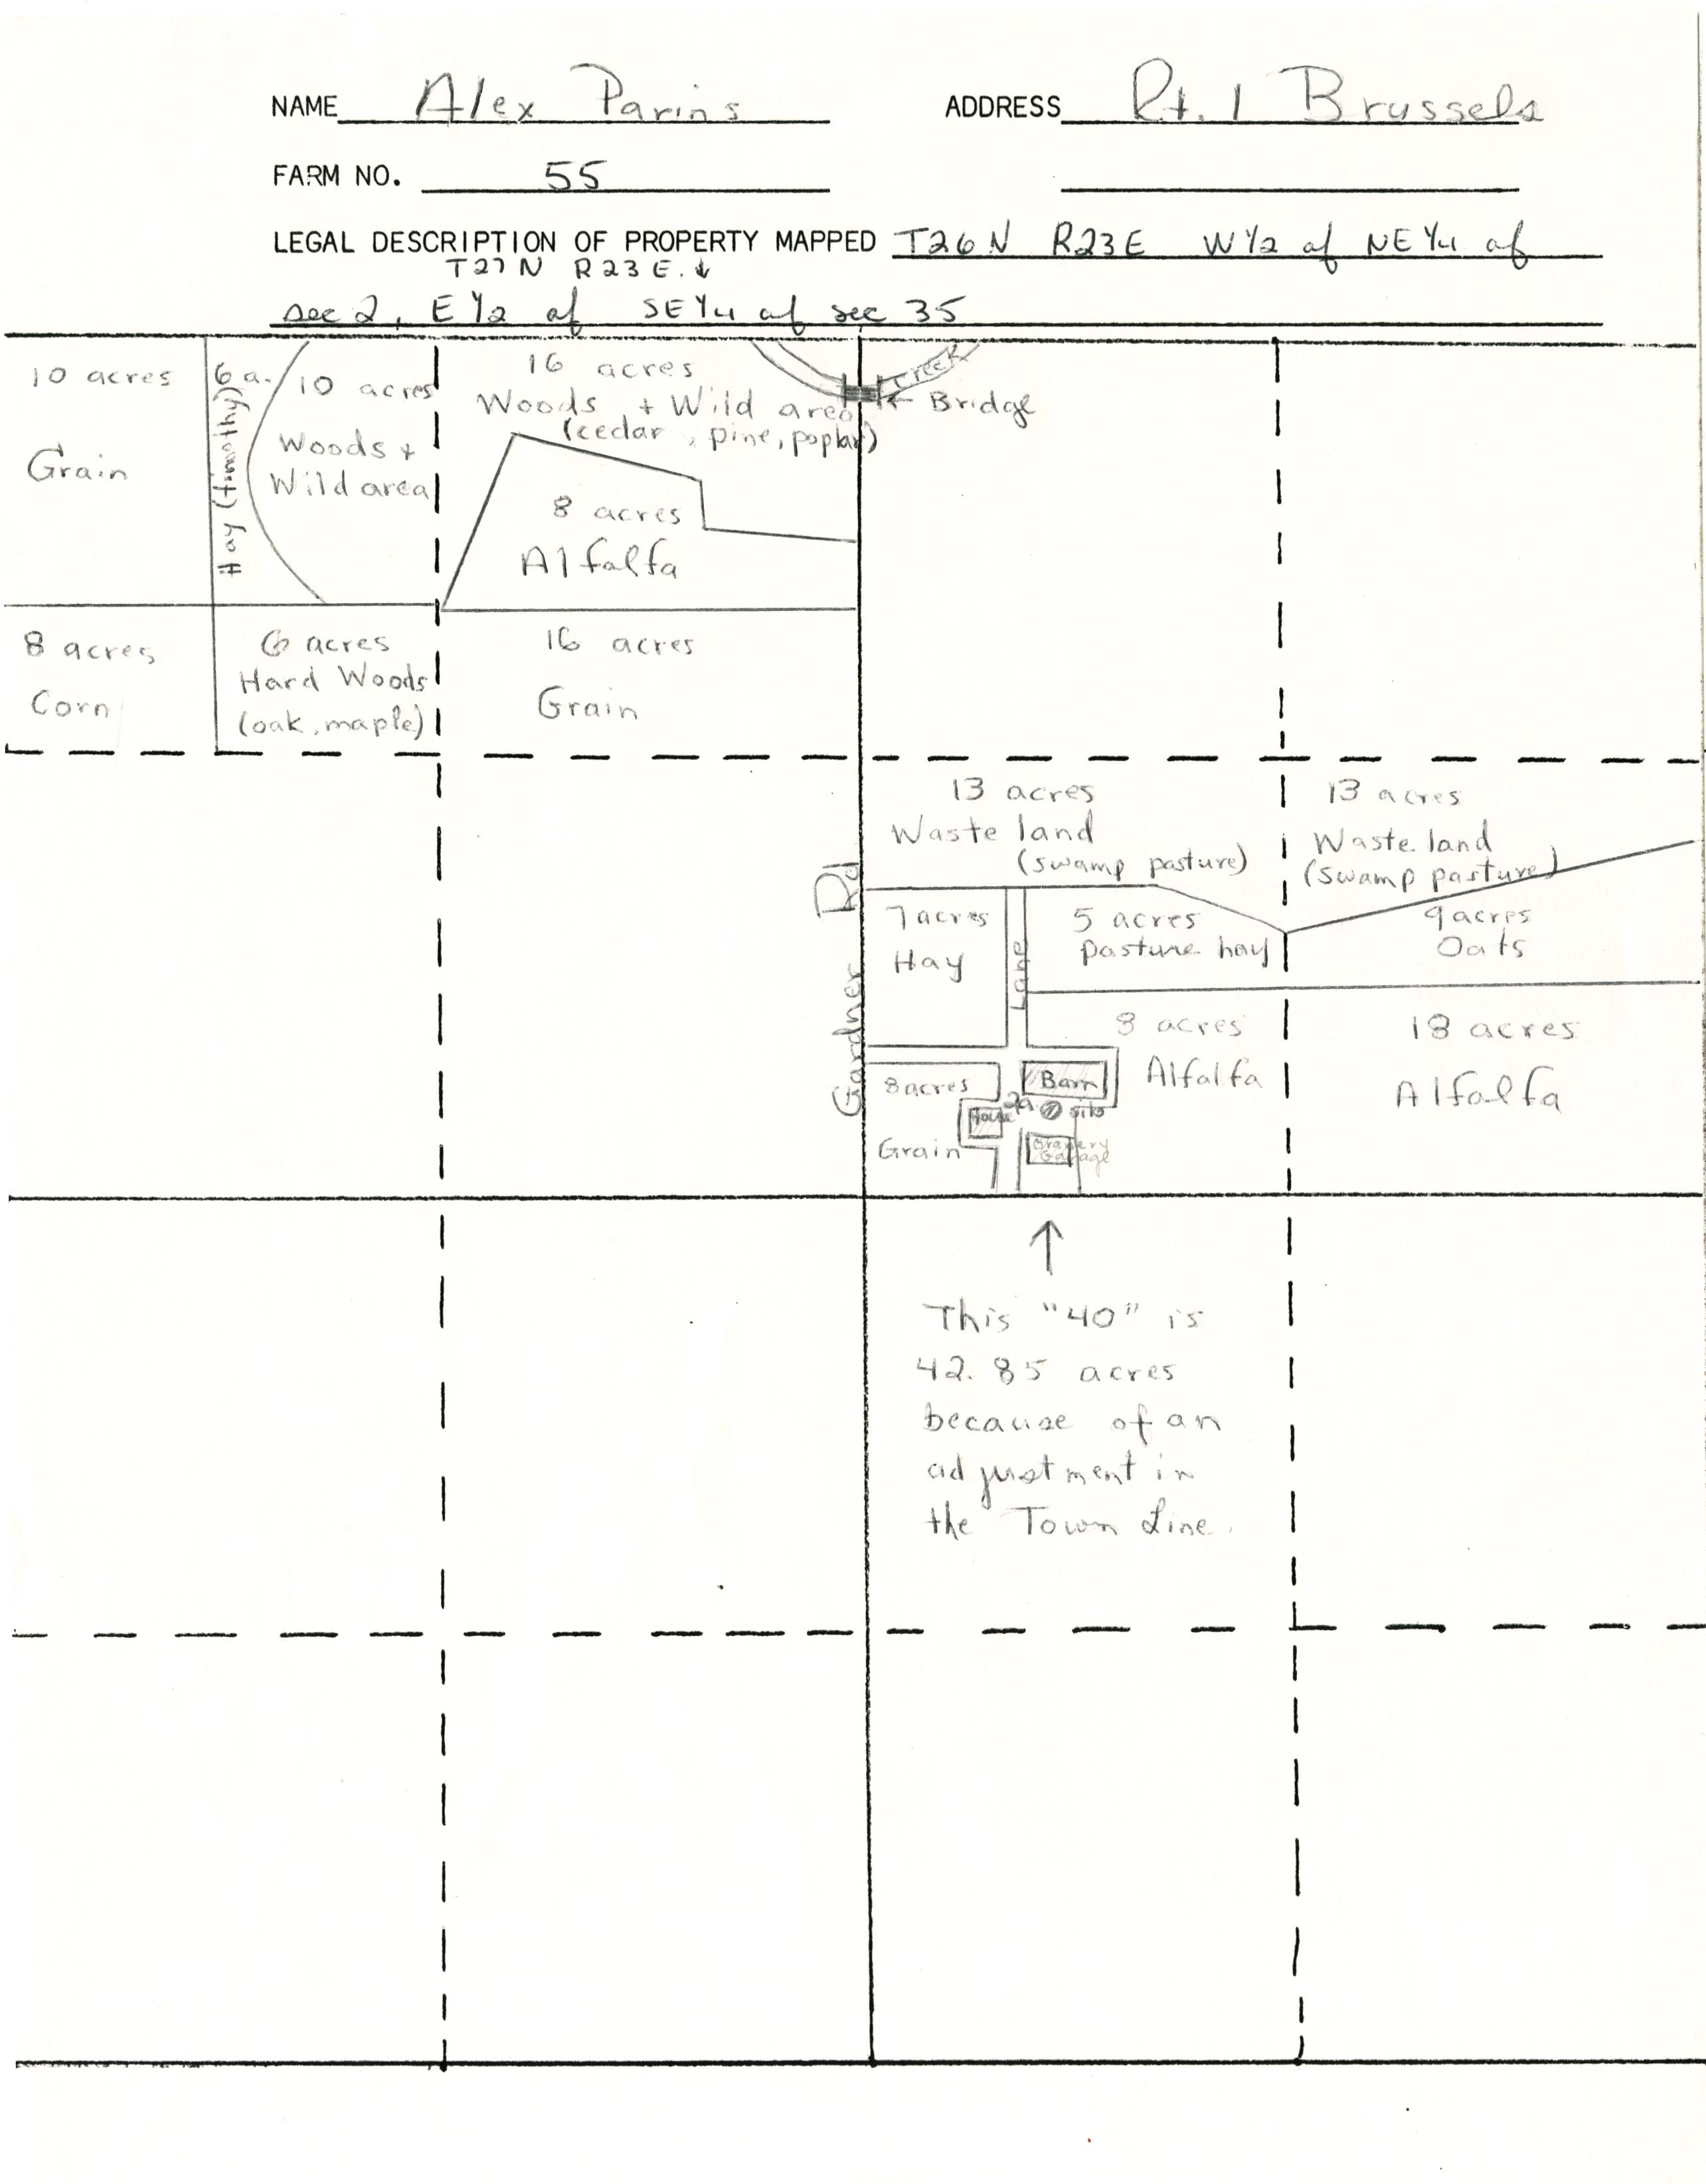 NAME Alex Parins ADDRESS Rt. 1 Brussels
FARM NO. 55
LEGAL DESCRIPTION OF PROPERTY MAPPED T26N R23E W½ of NE¼ of
T27N R23E. ↓
sec 2, E½ of SE¼ of sec 35
10 acres
Grain
6 a.
Hay (timothy)
10 acres
Woods +
Wild area
16 acres
Woods + Wild area
(cedar, pine, poplar)
Creek
← Bridge
8 acres
Alfalfa
8 acres
Corn
6 acres
Hard Woods
(oak, maple)
16 acres
Grain
Gardner Rd
13 acres
Waste land
(swamp pasture)
13 acres
Waste land
(swamp pasture)
7 acres
Hay
Lane
5 acres
pasture hay
9 acres
Oats
8 acres
Alfalfa
18 acres
Alfalfa
8 acres
Grain
Barn
2a
silo
House
Granery
Garage
↑
This "40" is
42.85 acres
because of an
adjustment in
the Town Line.